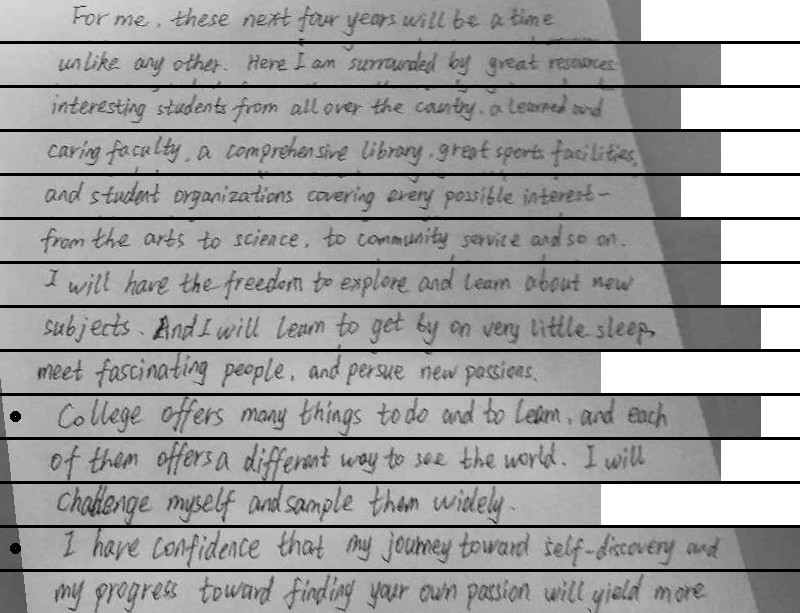 For me, these next four years will be a time
unlike any other. Here I am surrounded by great resources
interesting students from all over the country, a learned and
caring faculty, a comprehensive library, great sports facilities,
and student organizations covering every possible interest-
from the arts to science, to community service and so on.
I will have the freedom to explore and learn about new
subjects. And I will learn to get by on very little sleep,
meet fascinating people, and persue new passions.
College offers many things to do and to learn, and each
of them offers a different way to see the world. I will
challenge myself and sample them widely.
I have confidence that my journey toward self-discovery and
my progress toward finding your own passion will yield more